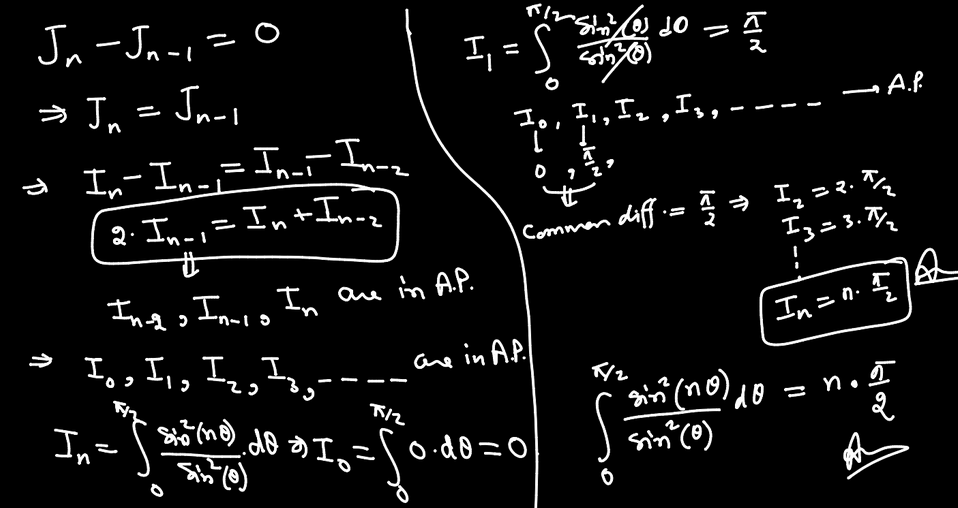 J_n - J_{n-1} = 0
⇒ J_n = J_{n-1}
⇒ I_n - I_{n-1} = I_{n-1} - I_{n-2}
2. I_{n-1} = I_n + I_{n-2}
⇓
I_{n-2}, I_{n-1}, I_n are in A.P.
⇒ I_0, I_1, I_2, I_3, ---- are in A.P.
I_n = ∫_0^{π/2} sin²(nθ)/sin²(θ) . dθ ⇒ I_0 = ∫_0^{π/2} 0·dθ = 0
I_1 = ∫_0^{π/2} sin²(θ)/sin²(θ) dθ = π/2
I_0, I_1, I_2, I_3, ----- → A.P.
↓ ↓
0, π/2,
⇓
Common diff. = π/2 ⇒ I_2 = 2·π/2
I_3 = 3·π/2
I_n = n·π/2
∫_0^{π/2} sin²(nθ)/sin²(θ) dθ = n·π/2